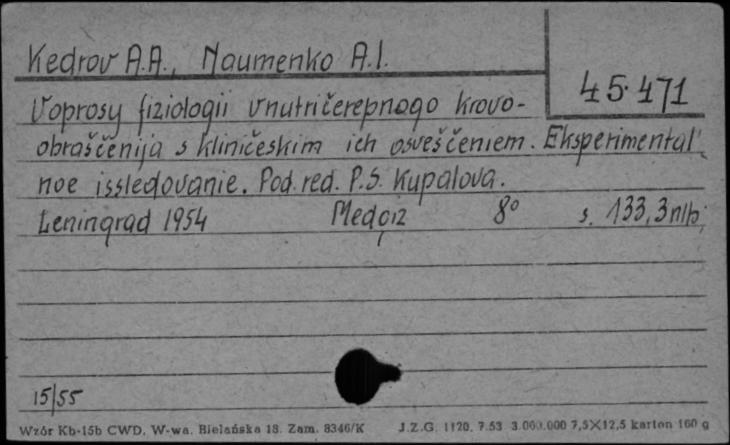 Kedrov A.A., Naumenko A.I.
45.471
Voprosy fiziologii vnutričerepnogo krovo-
obraščenija s kliničeskim ich osveščeniem. Eksperimental'
noe issledovanie. Pod. red. P.S. Kupalova.
Leningrad 1954 Medgiz 8° s. 133, 3nlb.
15/55
Wzór Kb-15b CWD. W-wa. Bielańska 18. Zam. 8346/K J.Z.G. 1120. 7.53 3.000.000 7,5×12,5 karton 160 g